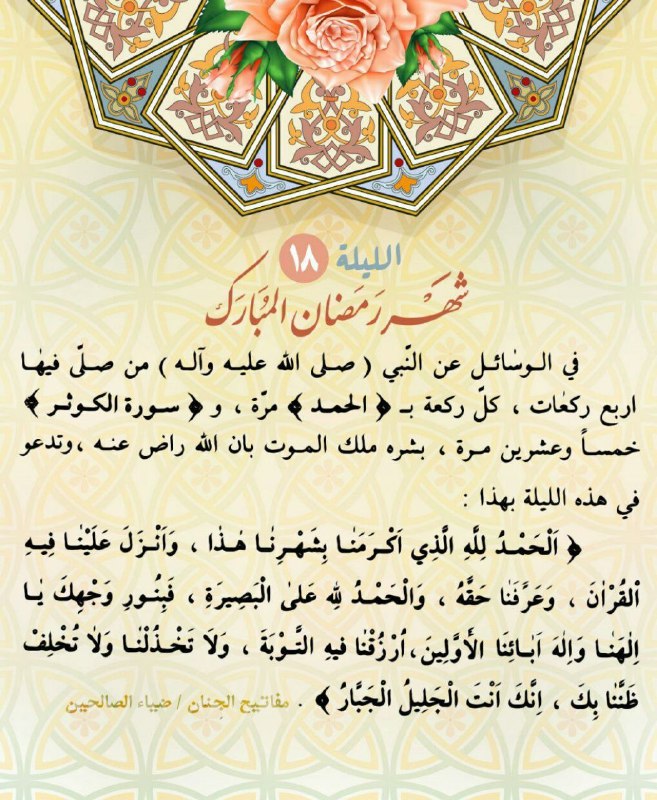 الليلة ١٨
شهر رمضان المبارك
في الوسائل عن النّبي ( صلى الله عليه وآله ) من صلّى فيها
اربع ركعات ، كلّ ركعة بـ ﴿ الحمد ﴾ مرّة ، و ﴿ سورة الكوثر ﴾
خمساً وعشرين مرة ، بشره ملك الموت بان الله راض عنه ،وتدعو
في هذه الليلة بهذا :
﴿ اَلْحَمْدُ لِلَّهِ الَّذِي اَكْرَمَنٰا بِشَهْرِنٰا هٰذٰا ، وَاَنْزَلَ عَلَيْنٰا فِيهِ
الْقُرْاٰنَ ، وَعَرَّفَنٰا حَقَّهُ ، وَالْحَمْدُ لِلهِ عَلىٰ الْبَصِيرَةِ ، فَبِنُورِ وَجْهِكَ يٰا
اِلٰهَنٰا وَاِلٰهَ اٰبٰائِنَا الأَوَّلِينَ،اُرْزُقْنٰا فيهِ التَّوْبَةَ ، وَلاَ تَخْذُلْنٰا وَلاٰ تُخْلِفْ
ظَنَّنٰا بِكَ ، اِنَّكَ اَنْتَ الْجَلِيلُ الْجَبَّارُ ﴾ . مفاتيح الجنان / ضياء الصالحين